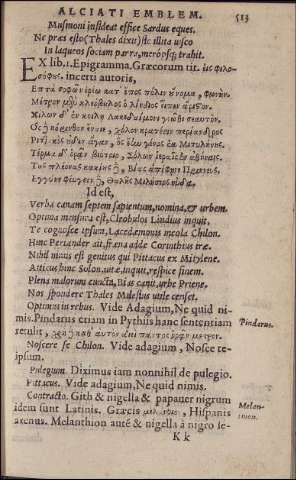 ALCIATI EMBLEM. 513
Musmoni insideat effice Sardus eques.
Ne præs esto (Thales dixit) sic illita visco
In laqueos sociam parra, meropsq; trahit.
EX lib. 1. Epigramma. Græcorum tit. εἰς φιλο-
σόφους. incerti autoris,
Ἑπτὰ σοφῶν ἐρέω κατ' ἔπος πόλιν οὔνομα, φωνήν.
Μέτρον μὲν κλεόβουλος ὁ λίνδιος εἶπεν ἄριστον.
Χίλων δ' ἐν κοίλῃ Λακεδαίμονι γνῶθι σεαυτόν.
Ὃς κόρινθον ἔναιε, χόλον κρατέειν περίανδρος
Πιττακὸς οὐδὲν ἄγαν, ὃς ἔην γένος ἐκ Μιτυλάνας.
Τέρμα δ' ὁρᾶν βιότοιο, Σόλων ἱεραῖς ἐν ἀθήναις.
Τοὺς πλέονας κακίους, Βίας ἀπέφηνε Πριηνεύς.
Ἐγγύην φεύγειν, Θαλῆς Μιλήσιος ηὔδα.
Id est,
Verba canam septem sapientum, nomina, & urbem.
Optima mensura est, Cleobulos Lindius inquit.
Te cognosce ipsum, Lacedæmonis incola Chilon.
Hinc Periander ait, fræna adde Corinthius iræ.
Nihil nimis est genitus qui Pittacus ex Mitylene.
Atticus hinc Solon, vitæ, inquit, respice finem.
Plena malorum cuncta, Bias canit, urbe Priene.
Nos spondere Thales Malesius utile censet.
Optimus in rebus. Vide Adagium, Ne quid ni-
mis. Pindarus etiam in Pythiis hanc sententiam Pindarus.
retulit, χρὴ καθ' αὑτὸν αἰεὶ παντὸς ὁρᾷν μέτρον.
Noscere se Chilon. Vide adagium, Nosce te-
ipsum.
Pulegium. Diximus iam nonnihil de pulegio.
Pittacus. Vide adagium, Ne quid nimis.
Contracto. Gith & nigella & papauer nigrum
idem sunt Latinis. Græcis μελάνθιον, Hispanis Melan-
axenus. Melanthion autē & nigella à nigro se- thion.
K k